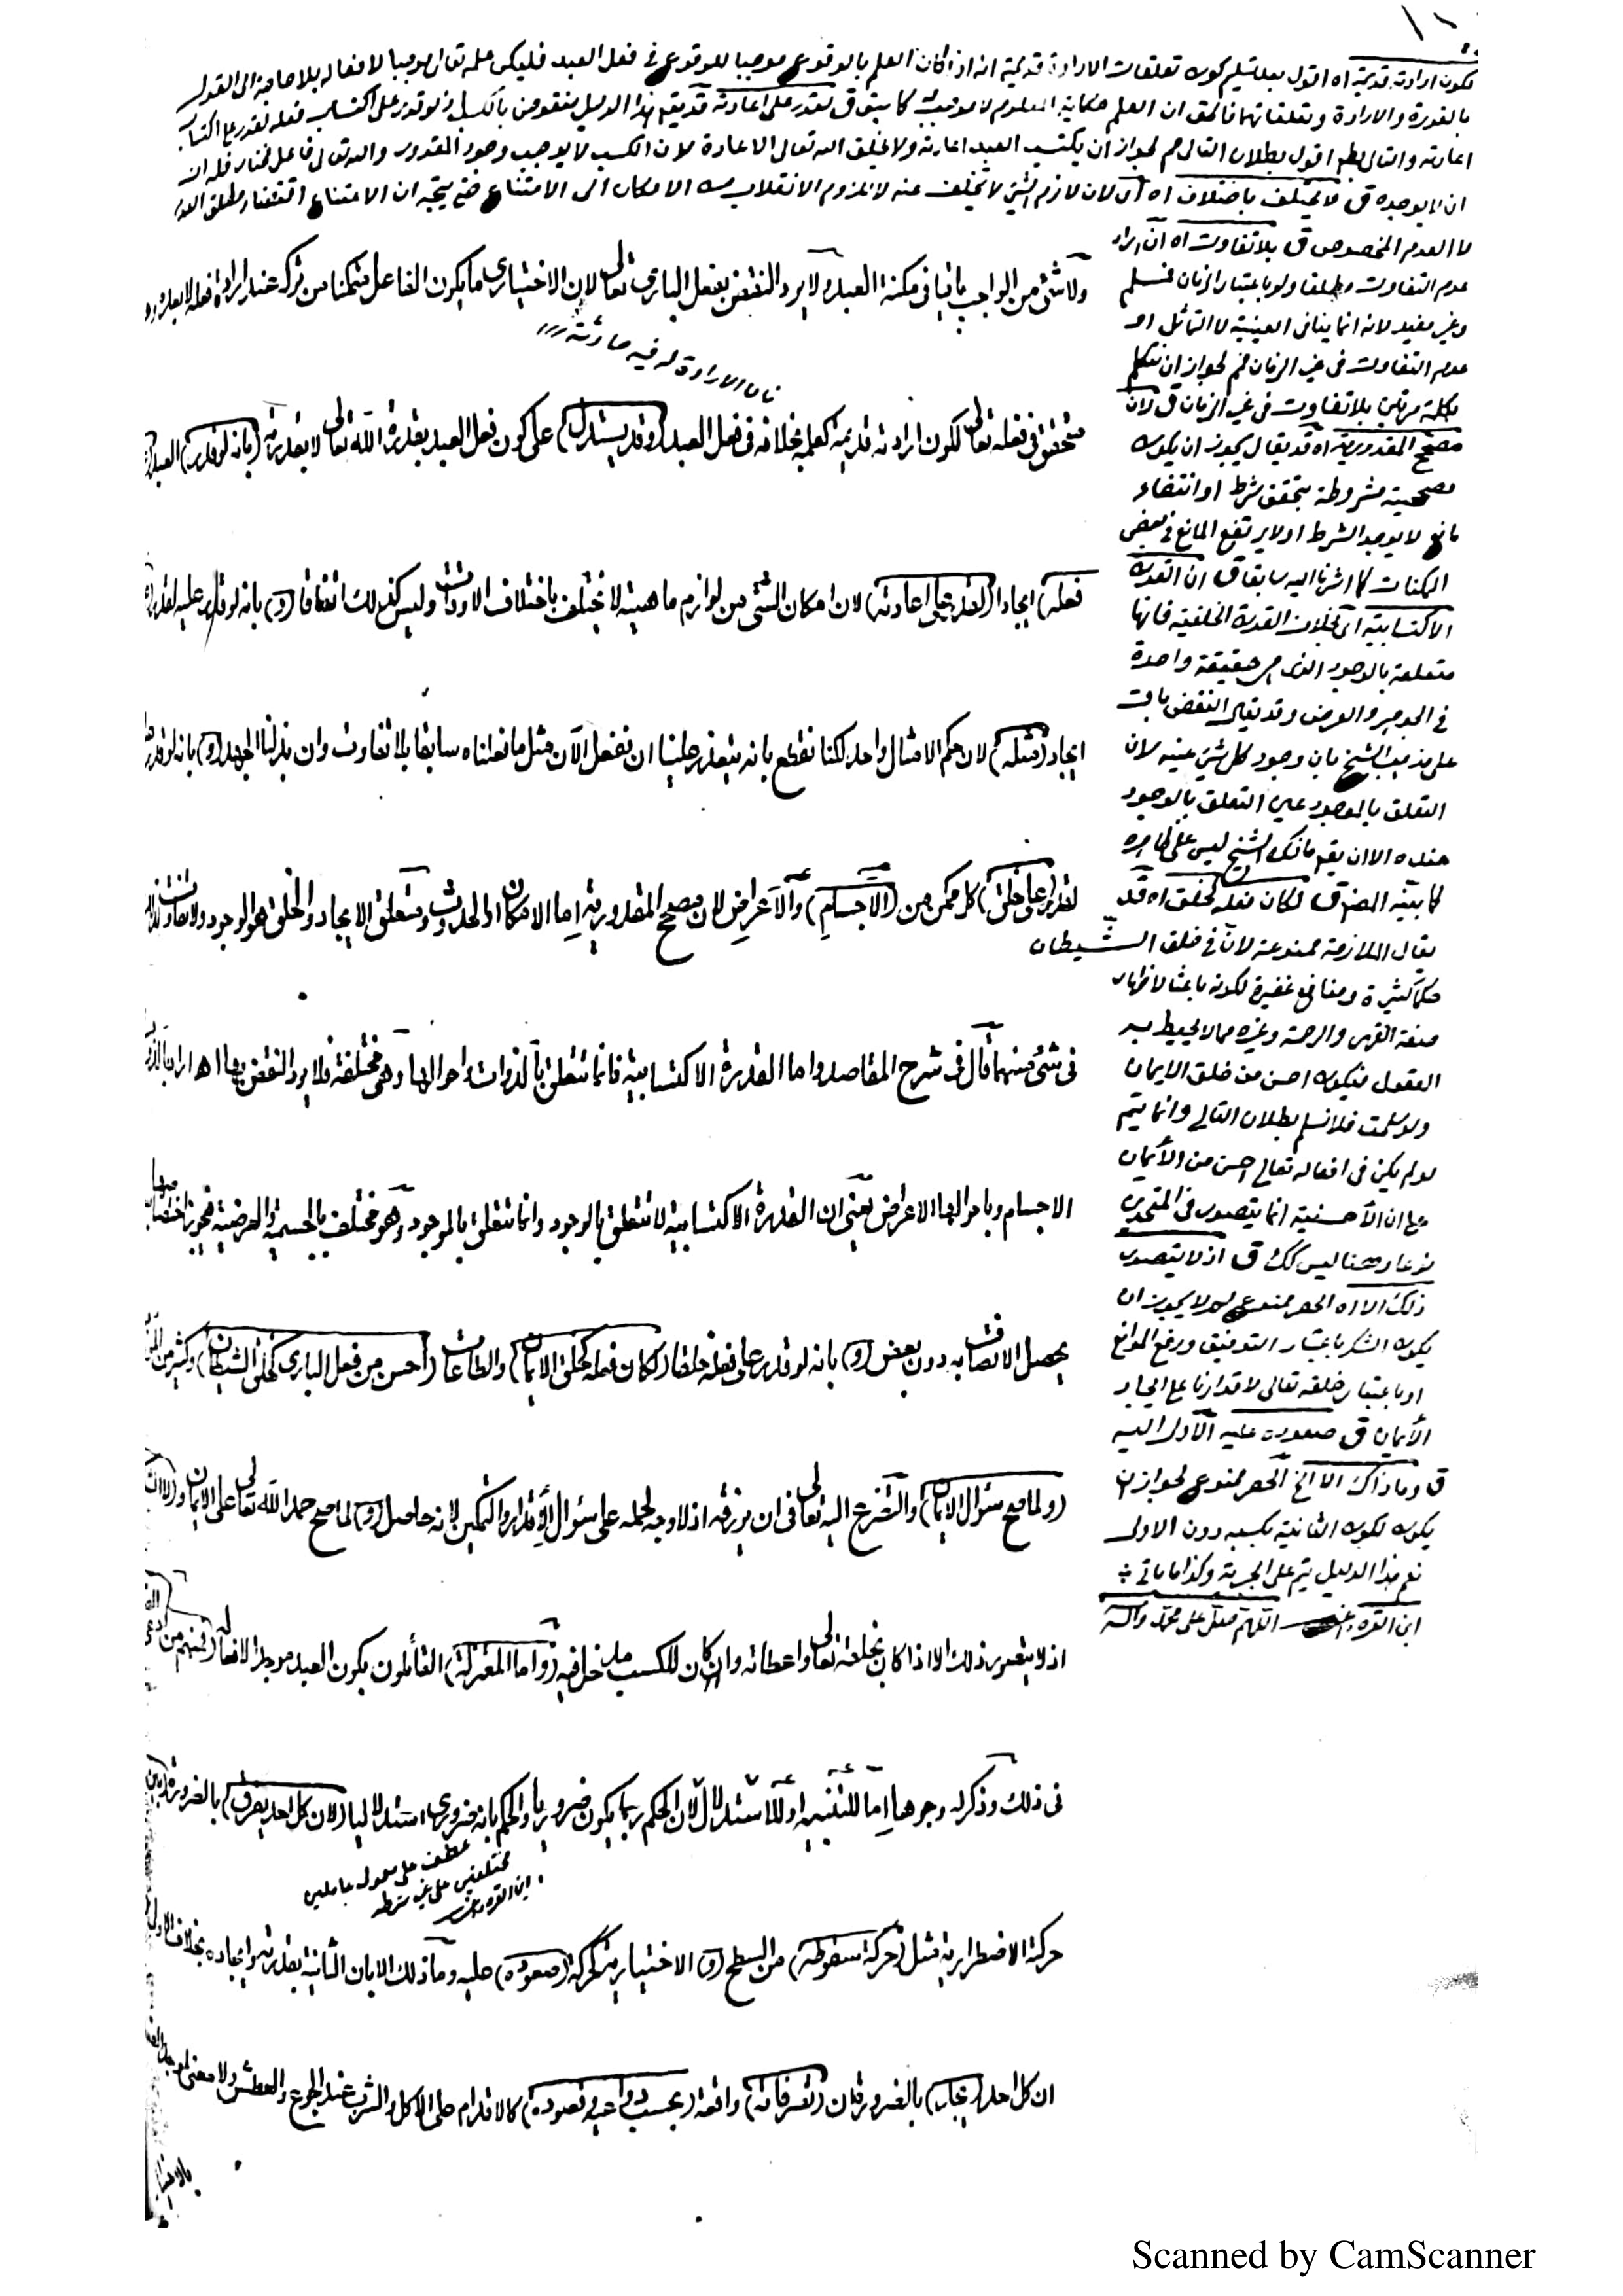 لكون ارادته قديمة اه اقول بعد تسليم كون تعلقات الارادة قديمة انه اذا كان العلم بالوقوع موجبا للوقوع في فعل العبد فليكن علمه تعالى موجبا لافعاله بلا حاجة الى القول
بالقدرة والارادة وتعلقاتهما فالحق ان العلم حكاية المعلوم لا موجب كا سبق ق لقدر على اعادته قد يقه هذا الدليل منقوض بالكسب اذ لو قدر على اكتساب فعله لقدر على اكتساب
اعادته والتالى بط اقول بطلان التالى مم لجواز ان يكتسب العبد اعادته ولا يخلق الله تعالى الاعادة لان الكسب لا يوجب وجود المقدور والله تعالى فاعل مختار فله ان
ان لا يوجده ق لا يختلف باختلاف اه اى لان لازم الشئ لا يتخلف عنه لا لزوم الانقلاب من الامكان الى الامتناع حتى يتجه ان الامتناع اقتضاء مطلق العدم
لا العدم المخصوص ق بلا تفاوت اه ان اراد
عدم التفاوت مطلقا ولو باعتبار الزمان فمسلم
وغير مفيد لانه انما ينافى العينية لا التماثل او
عدم التفاوت فى غير الزمان فمم لجواز ان نتكلم
بكلمة مرتين بلا تفاوت فى غير الزمان ق لان
مصحح المقدورية اه قد يقال يجوز ان يكون
مصححيته مشروطة بتحقق شرط او انتفاء
مانع لا يوجد الشرط او لا يرتفع المانع فى بعض
الممكنات كما اشرنا اليه سابقا ق ان القدرة
الاكتسابية اى بخلاف القدرة الخلقية فانها
متعلقة بالوجود الذى هو حقيقة واحدة
فى الجوهر والعرض وقد يقال النقض باق
على مذهب الشيخ بان وجود كل شئ عينه لان
التعلق بالموجود عين التعلق بالوجود
عنده الا ان يقه ما ذكره الشيخ ليس على ظاهره
كما بينه المصنف ق لكان فعله كخلق اه قد
يقال الملازمة ممنوعة لان فى خلق الشيطان
حكما كثيرة ومنافع غفيرة لكونه باعثا لاظهار
صفة القهر والرحمة وغيره مما لا يحيط به
العقول فيكون احسن من خلق الايمان
ولو سلمت فلا نسلم بطلان التالى وانما يتم
لو لم يكن فى افعاله تعالى احسن من الأيمان
على ان الأحسنية انما يتصور فى المتحدين
نوعا وههنا ليس كك ق اذ لا يتصور
ذلك الا اه الحصر ممنوع لم لا يجوز ان
يكون الشكر باعتبار التوفيق ورفع الموانع
او باعتبار خلقه تعالى لاقدارنا على ايجاد
الأيمان ق صعوده عليه الاولى اليه
ق وما ذاك الا الخ الحصر ممنوع لجواز ان
يكون لكون الثانية بكسبه دون الاولى
نعم هذا الدليل يتم على الجبرية وكذا ما يأتى
ابن القره داغى اللهم صل على محمد وآله
ولا شئ من الواجب باقيا فى مكنة العبد ولا يرد النقض بفعل البارى تعالى لان الاختيارى ما يكون الفاعل متمكنا من تركه عند ارادة فعله لا بعده وهو
فان الارادة له فيه حادثة
متحقق فى فعله تعالى لكون ارادته قديمة كعلمه بخلافه فى فعل العبد (وقد يستدل) على كون فعل العبد بقدرة الله تعالى لا بقدرته (بانه لو قدر) العبد على
فعله) ايجادا (لقدر على اعادته) لان امكان الشئ من لوازم ماهيته لا يختلف باختلاف الاوقات وليس كذلك اتفاقا (و) بانه لو قدر عليه لقدر على
ايجاد (مثله) لان حكم الامثال واحد لكنا نقطع بانه يتعذر علينا ان نفعل الآن مثل ما فعلناه سابقا بلا تفاوت وان بذلنا الجهد (و) بانه لو قدر
لقدر (على خلق) كل ممكن من (الاجسام) والاعراض لان مصحح المقدورية اما الامكان او الحدوث ومتعلق الايجاد والخلق هو الوجود ولا تفاوت
فى شئ منهما قال فى شرح المقاصد واما القدرة الاكتسابية فانما تتعلق بالذوات واحوالها وهى مختلفة فلا يرد النقض بها اه اراد بالذوات
الاجسام وباحوالها الاعراض يعنى ان القدرة الاكتسابية لا تتعلق بالوجود وانما تتعلق بالموجود وهو مختلف بالجسمية والعرضية فيجوز
يحصل الاتصاف به دون بعض (و) بانه لو قدر على فعله خلقا (لكان فعله كخلق الايمان) والطاعات (احسن من فعل البارى كخلق الشيطان) وكثير من
(ولما صح سئوال الايمان) والتضرع اليه تعالى فى ان يرزقه اذ لا وجه لحمله على سئوال الأقدار والتمكين لانه حاصل (و) لما صح حمد الله تعالى على الايمان
اذ لا يتصور ذلك الا اذا كان بخلقه تعالى واعطائه وان كان للكسب مدخل فيه (واما المعتزلة) القائلون بكون العبد موجدا لافعاله (فمنهم من ادعى
فى ذلك وذكر له وجوها اما للتنبيه او للاستدلال لان الحكم ربما يكون ضروريا والحكم بانه ضرورى استدلاليا (لان كل احد يفرق) بالضرورة (بين
عطف على معمول عاملين
مختلفين على غير شرطه
ابن القره داغى
حركته الاضطرارية مثل (حركة سقوطه) من السطح (و) الاختيارية كحركة (صعوده) عليه وما ذلك الا بان الثانية بقدرته وايجاده بخلاف الاولى
ان كل احد (يجد) بالضرورة ان (تصرفاته) واقعة (بحسب دواعيه وقصوده) كالاقدام على الاكل والشرب عند الجوع والعطش ولا معنى
Scanned by CamScanner